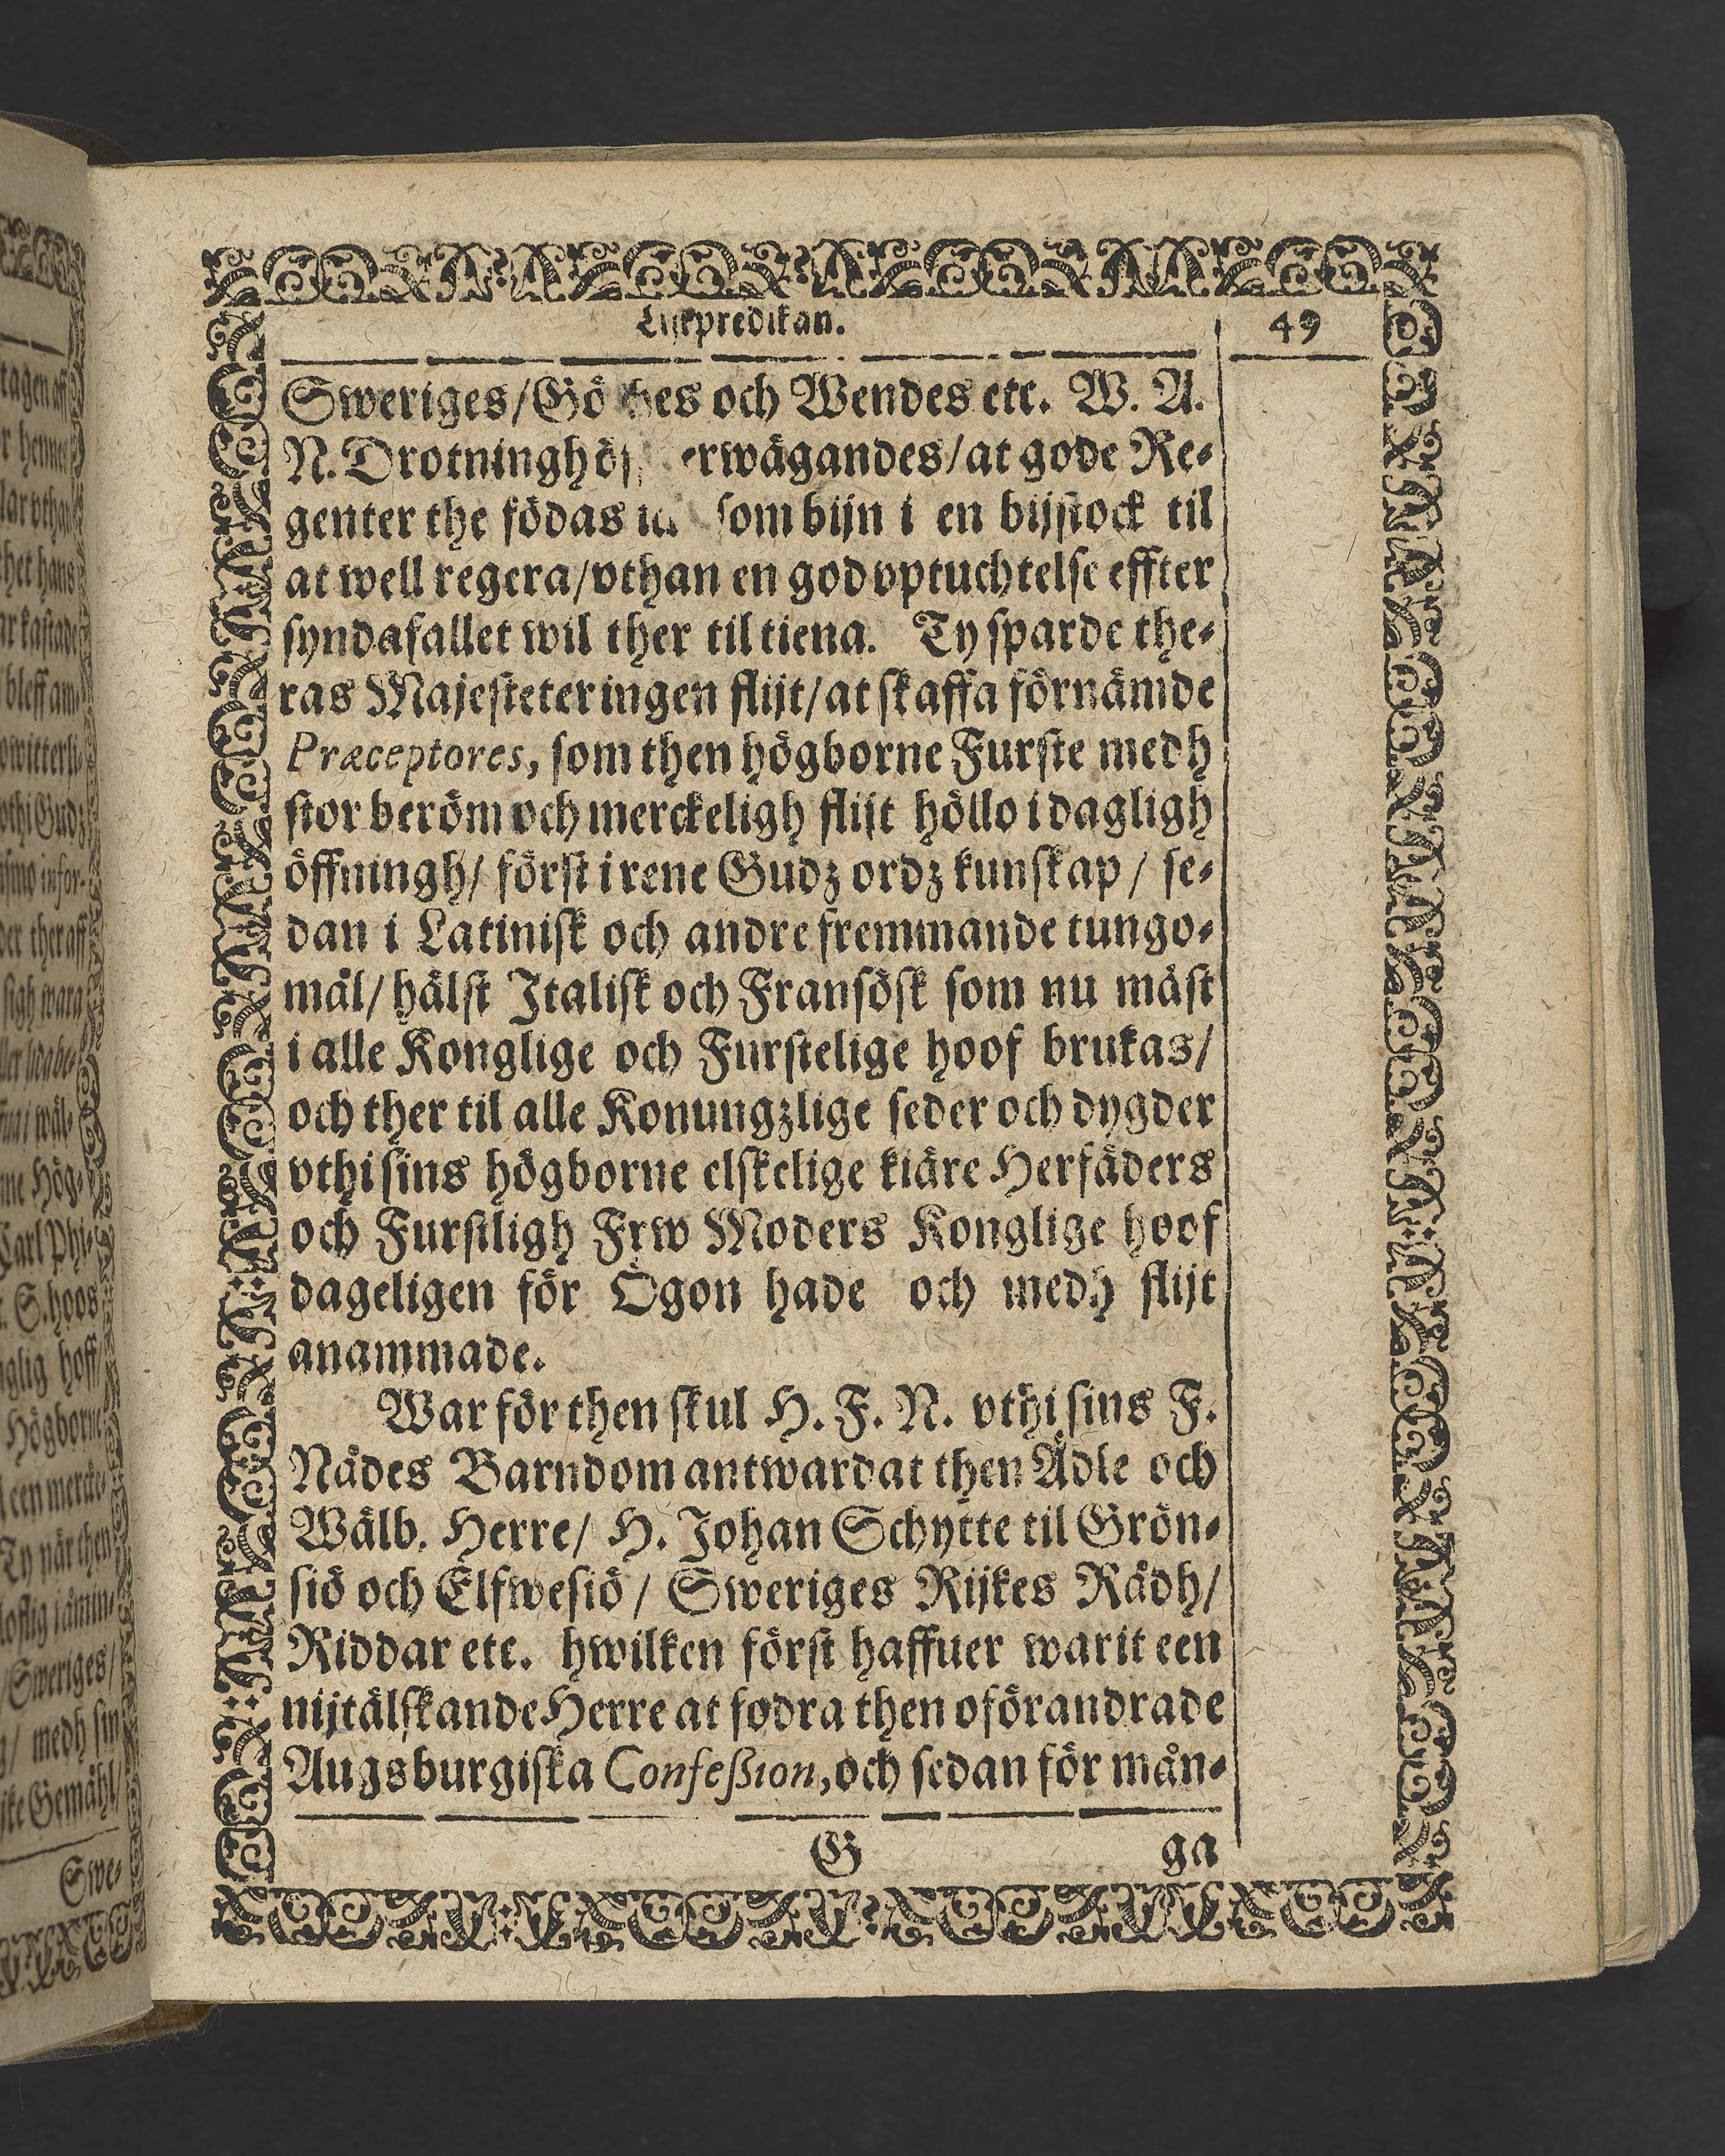 Lijkpredikan. 49
Sweriges/Göthes och Wendes etc. W. A.
N. Drotningh erwägandes/at gode Re-
genter the födas som bijn i en bijstock til
at well regera/vthan en god vptuchtelse effter
syndafallet wil ther til tiena. Ty sparde the-
ras Majesteter ingen flijt/at skaffa förnämde
Præceptores, som then högborne Furste medh
stor beröm och merckeligh flijt höllo i dagligh
öffningh/ först i rene Gudz ordz kunskap/ se-
dan i Latinisk och andre fremmande tungo-
mål/ hälst Italisk och Fransösk som nu måst
i alle Konglige och Furstelige hoof brukas/
och ther til alle Konungzlige seder och dygder
vthi sins högborne elskelige kiäre Herfäders
och Furstligh Frw Moders Konglige hoof
dageligen för Ögon hade och medh flijt
anammade.
War för then skul H. F. N. vthi sins F.
Nådes Barndom antwardat then Ädle och
Wälb. Herre/ H. Johan Schytte til Grön-
siö och Elfwesiö/ Sweriges Rijkes Rådh/
Riddar etc. hwilken först haffuer warit een
nijtälskande Herre at fodra then oförandrade
Augsburgiska Confeßion, och sedan för mån-
G ga
tagen aff
r hennes
lar vthan
thet hans
ar kastade
bleff am-
owitterli-
vthi Gudz
infor-
der ther aff
sigh wara
wäl-
Hög-
Carl Phi-
S. hoos
nglig hoff
Högborne
een merck-
Ty när then
loflig jåmin-
Sweriges/
medh sin
Gemähl/
Swe-